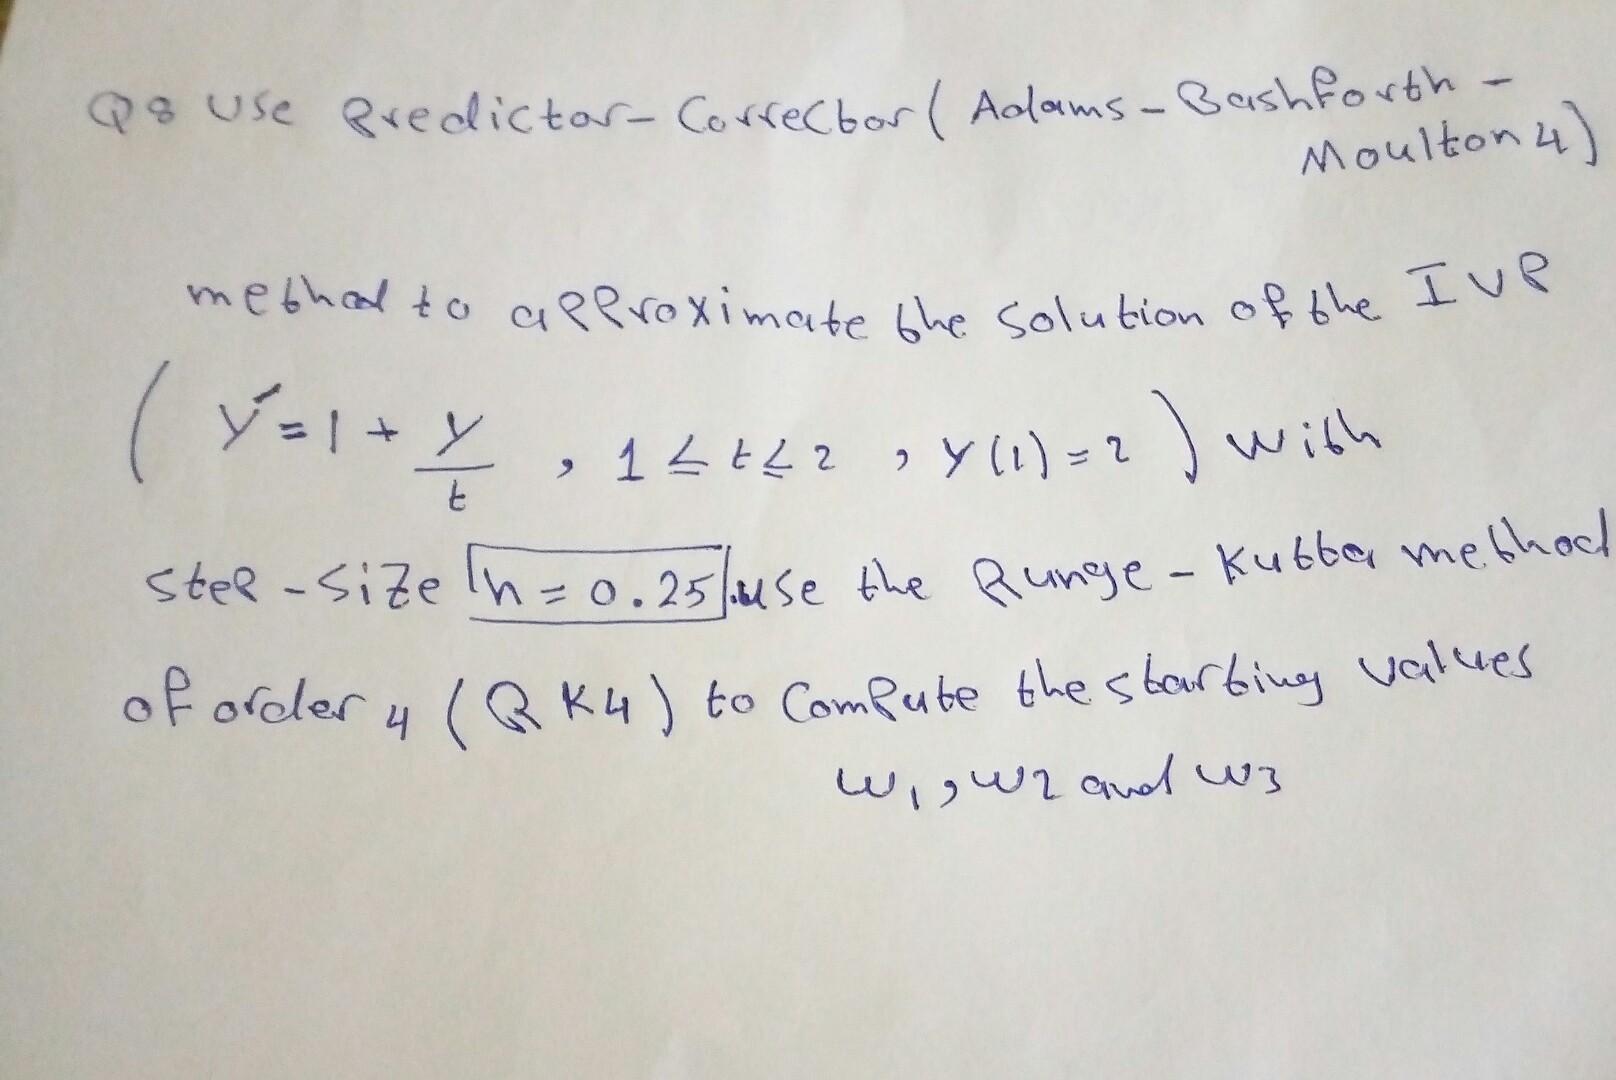 Q8 Use Predictor-Corrector (Adams-Bashforth-
Moulton 4)
method to approximate the solution of the IVP
( y' = 1 + y/t , 1 ≤ t ≤ 2 , y(1) = 2 ) with
step-size h = 0.25. use the Runge-Kutta method
of order 4 (RK4) to compute the starting values
w1, w2 and w3